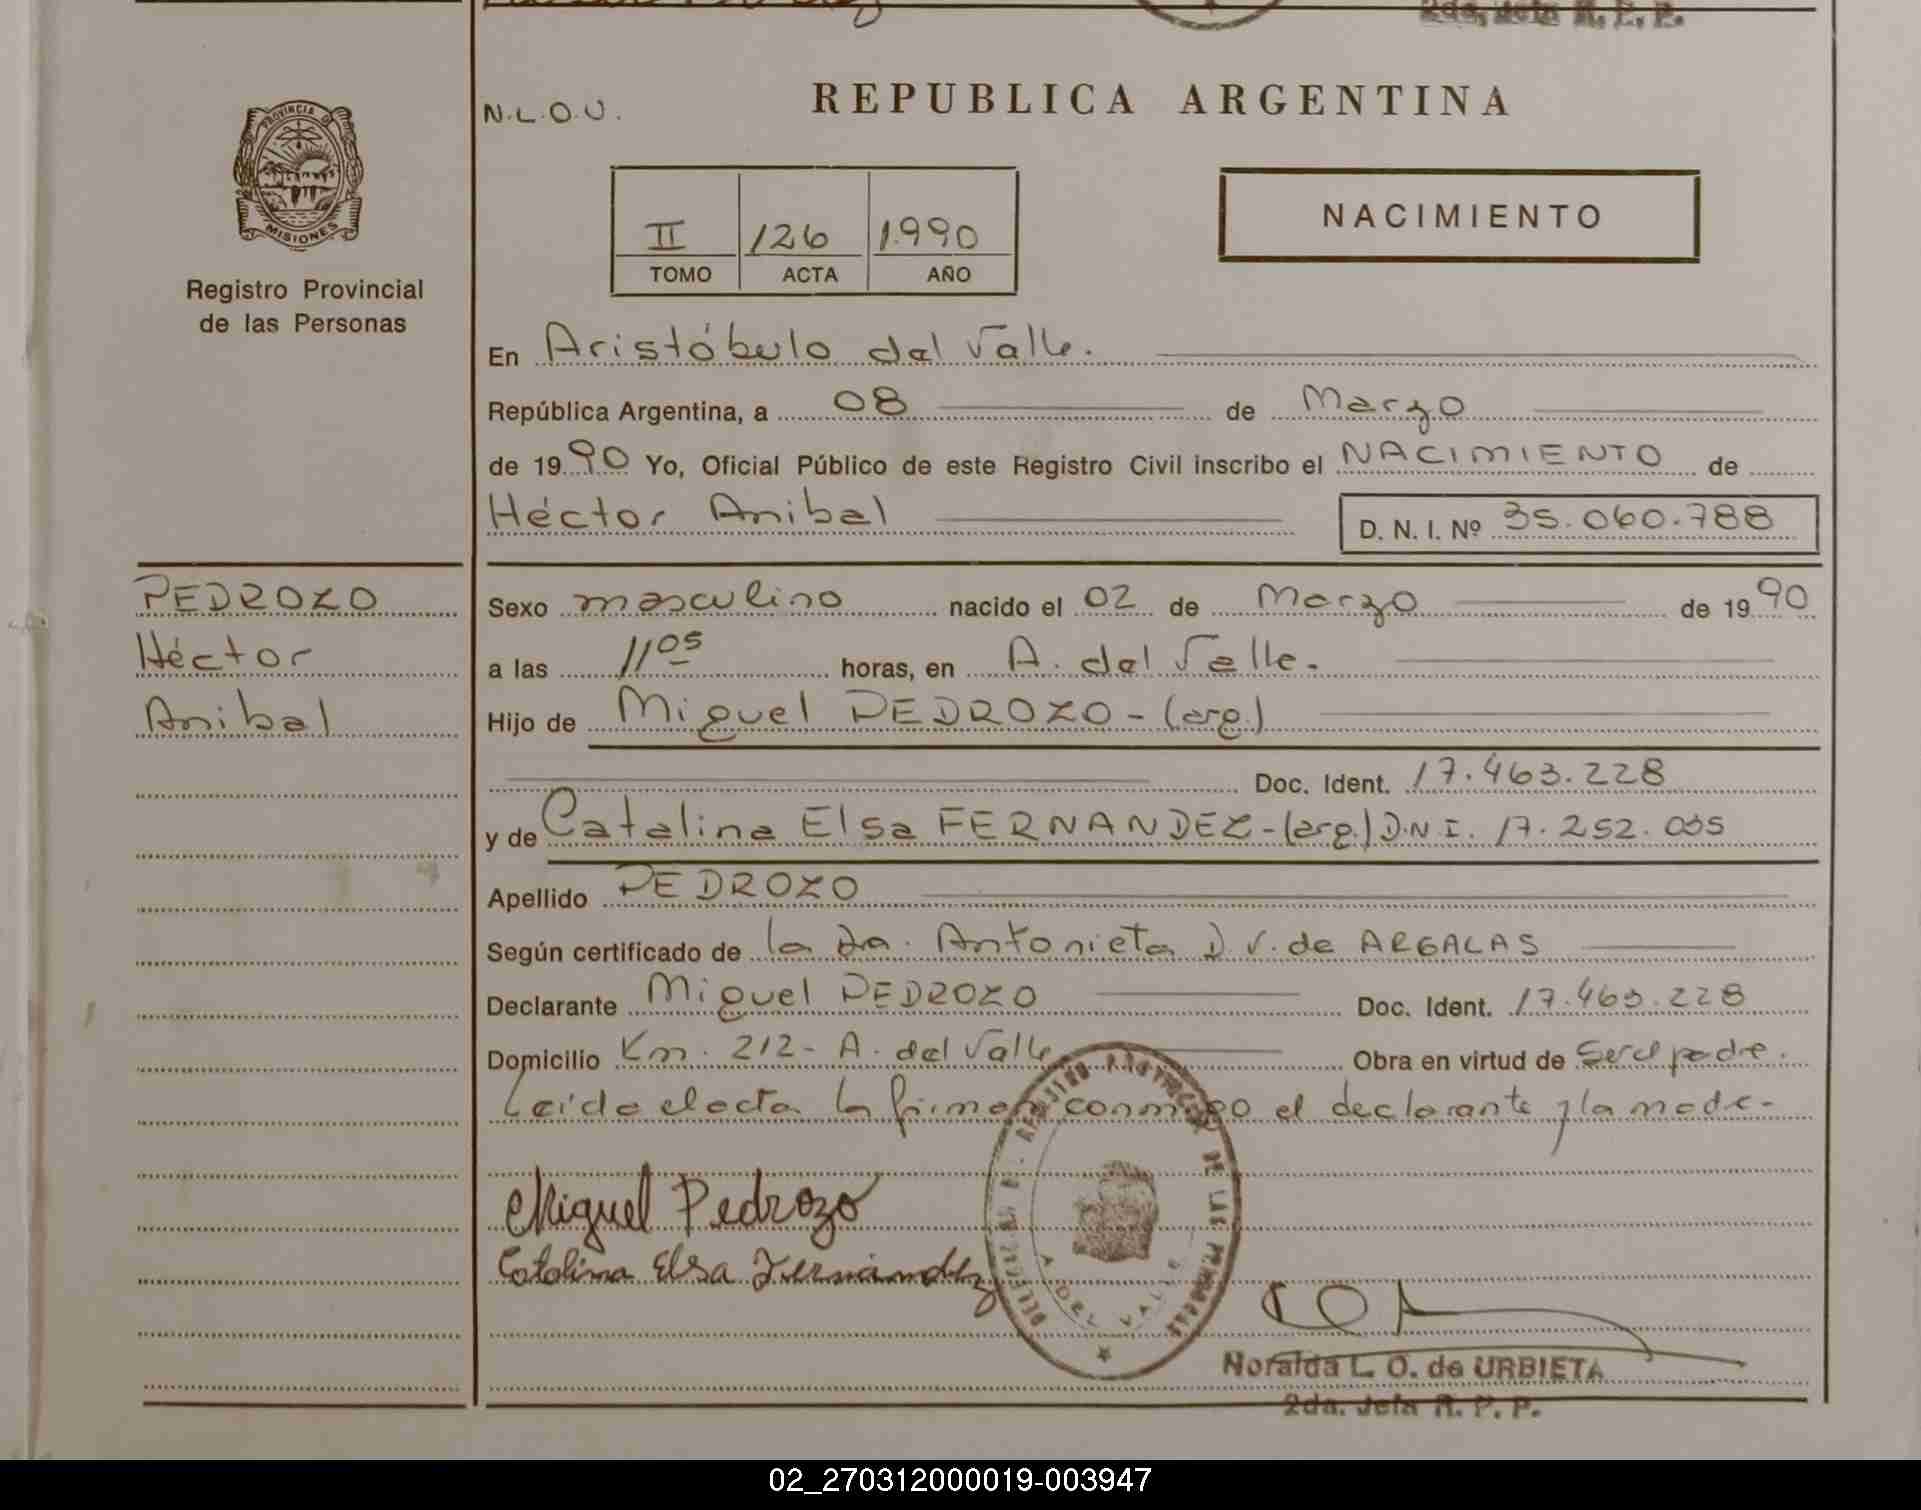 2da. Jefa R. P. P.
N.L.O.U.
REPUBLICA ARGENTINA
PROVINCIA DE
MISIONES
Registro Provincial
de las Personas
II 126 1.990
TOMO ACTA AÑO
NACIMIENTO
En Aristóbulo del Valle.
República Argentina, a 08 de Marzo
de 1990 Yo, Oficial Público de este Registro Civil inscribo el NACIMIENTO de
Héctor Anibal D. N. I. Nº 35.060.788
PEDROZO
Héctor
Anibal
Sexo masculino nacido el 02 de Marzo de 1990
a las 11 05 horas, en A. del Valle.
Hijo de Miguel PEDROZO - (arg.)
Doc. Ident. 17.463.228
y de Catalina Elsa FERNANDEZ - (arg.) D.N.I. 17.252.035
Apellido PEDROZO
Según certificado de la Da. Antonieta D. V. de ARGALAS
Declarante Miguel PEDROZO Doc. Ident. 17.463.228
Domicilio Km. 212 - A. del Valle Obra en virtud de Ser el padre.
Leída el acta la firman conmigo el declarante y la madre-
Miguel Pedrozo
Catalina Elsa Fernández
REGISTRO PROVINCIAL DE LAS PERSONAS
A. DEL VALLE
Noralda L. O. de URBIETA
2da. Jefa R. P. P.
02_270312000019-003947